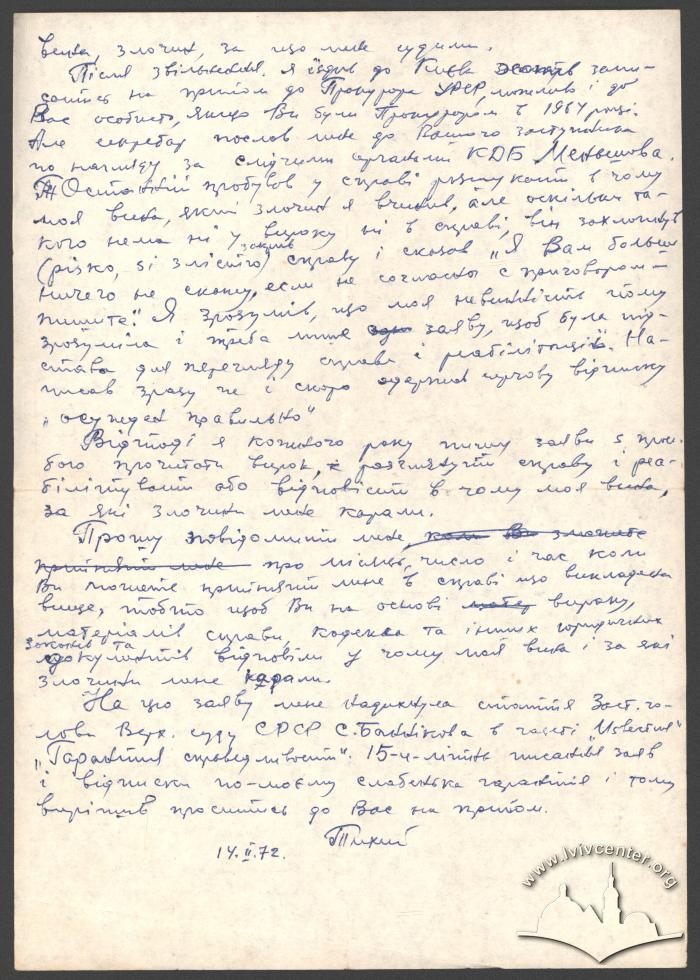 вина, злочин, за що мене судили.
Після звільнення я їздив до Києва запи-
сатись на прийом до Прокурора УРСР, можливо і до
Вас особисто, якщо Ви були Прокурором в 1964 році.
Але секретар послав мене до Вашого заступника
по нагляду за слідчими органами КДБ Меньшова.
Останній пробував у справі розшукати в чому
моя вина, який злочин я вчинив, але оскільки та-
кого нема ні у вироку ні в справі, він захлопнув
закрив
(різко, зі злістю) справу і сказав „Я Вам больше
ничего не скажу, если не согласны с приговором –
пишите." Я зрозумів, що моя невинність йому
зрозуміла і треба лише заяву, щоб була під-
става для перегляду справи і реабілітації. На-
писав зразу же і скоро одержав чергову відписку
„осужден правильно"
Відтоді я кожного року пишу заяви з прось-
бою прочитати вирок, розглянути справу і реа-
білітувати або відповісти в чому моя вина,
за які злочини мене карали.
Прошу повідомити мене коли Ви зможете
прийняти мене про місяць, число і час коли
Ви можете прийняти мене в справі що викладена
вище, тобто щоб Ви на основі вироку,
матеріалів справи, кодекса та інших юридичних
законів та
документів відповіли у чому моя вина і за які
злочини мене карали.
На цю заяву мене надихнула стаття Заст. го-
лови Верх. суду СРСР С. Баннікова в газеті „Известия"
„Гарантия справедливости". 15-и-літнє писання заяв
і відписки по-моєму слабенька гарантія і тому
вирішив проситись до Вас на прийом.
Тихий
14.II.72.
www.lvivcenter.org